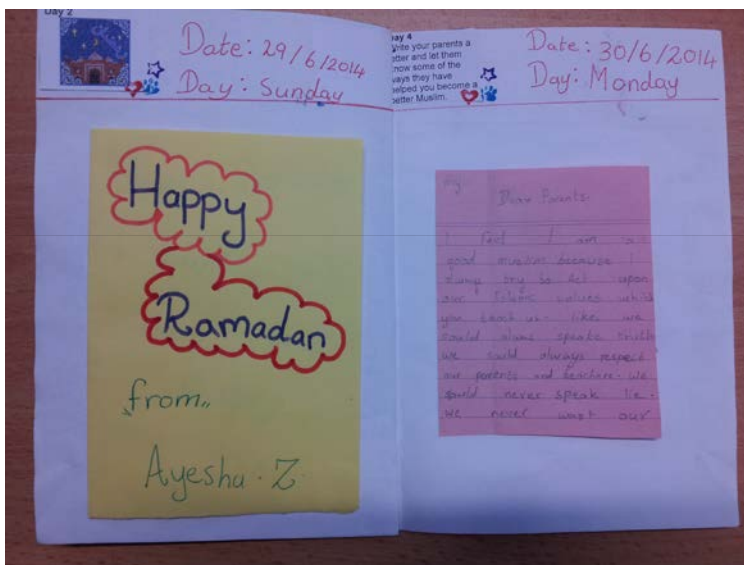 Day 2
Date: 29/6/2014
Day: Sunday
Happy
Ramadan
from,,
Ayesha. Z.
Day 4
Write your parents a
letter and let them
know some of the
ways they have
helped you become a
better Muslim.
Date: 30/6/2014
Day: Monday
Dear Parents.
I feel I am a
good muslim because I
to act upon
our Islamic values which
you teach us. like. we
speake truth
we sould always respect
our parents and teachers. we
sould never speak lie.
we never wast our